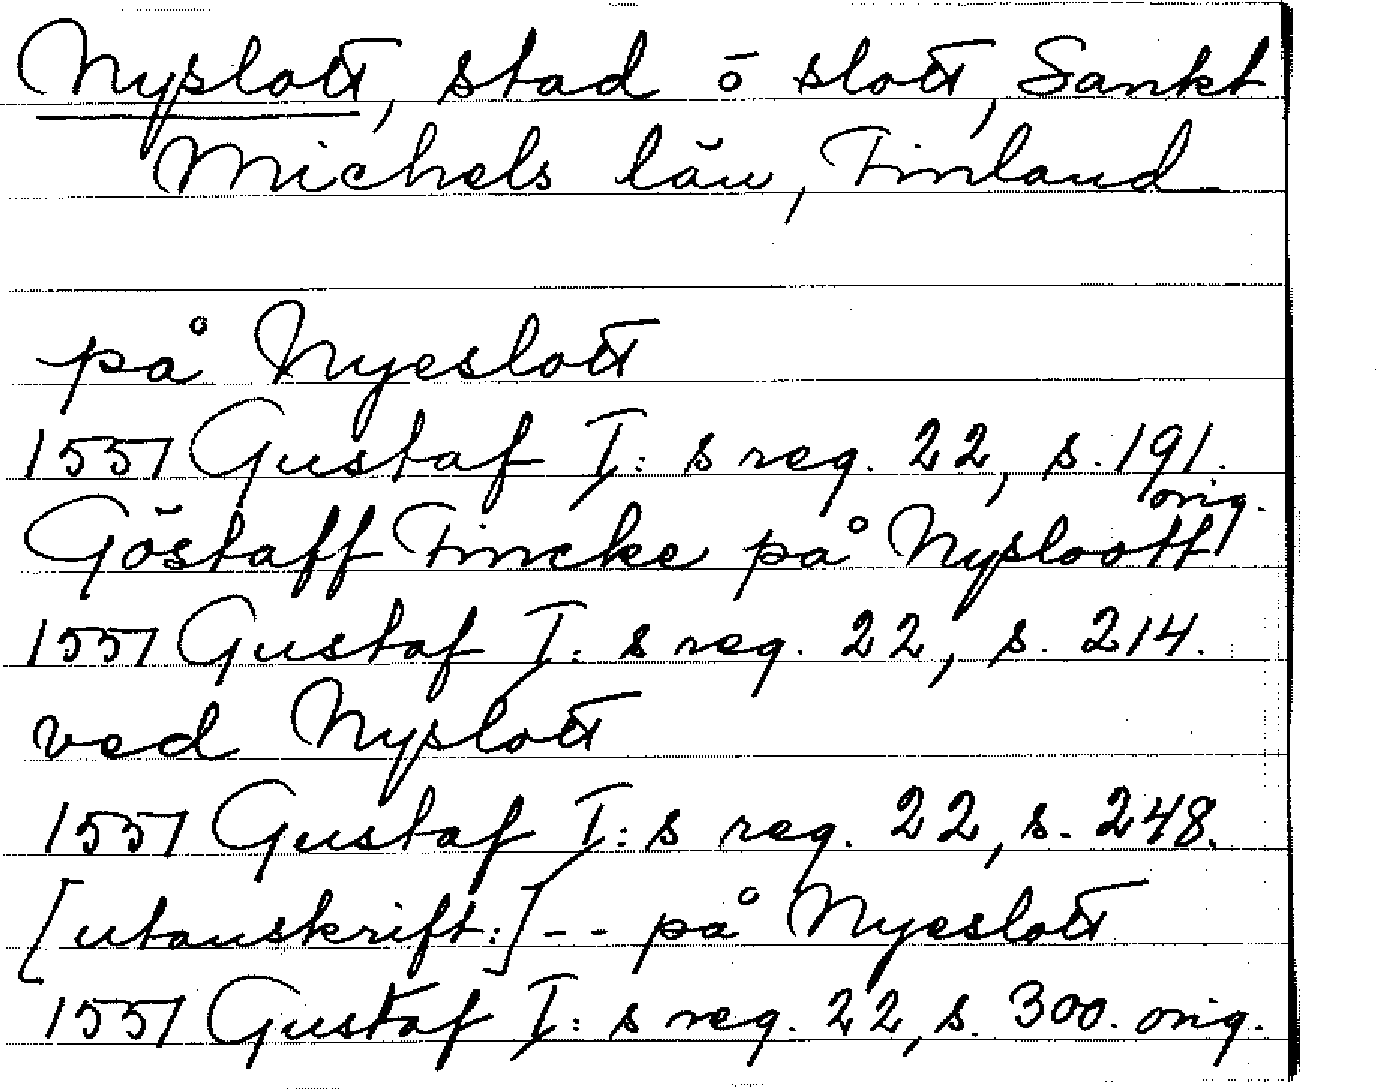 Nyslott, stad o slott, Sankt
Michels län, Finland
på Nyeslott
1551 Gustaf I:s reg. 22, s. 191.
orig.
Göstaff Fincke på Nysloott
1551 Gustaf I:s reg. 22, s. 214.
ved Nyslott
1551 Gustaf I:s reg. 22, s. 248.
[utanskrift:] -- på Nyeslott
1551 Gustaf I:s reg. 22, s. 300. orig.